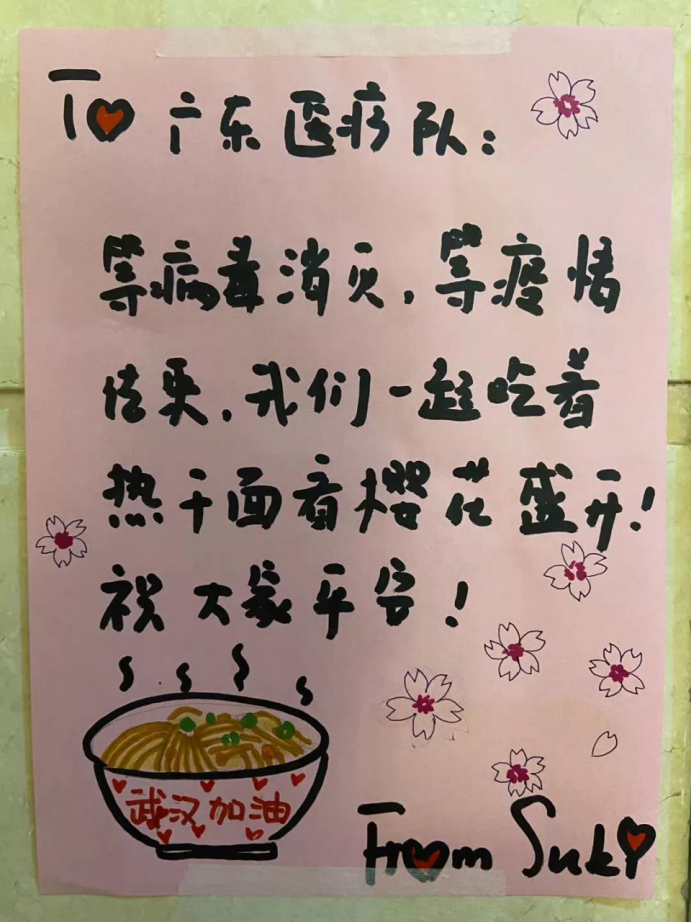 To 广东医疗队:
等病毒消灭,等疫情
结束,我们一起吃着
热干面看樱花盛开!
祝大家平安!
武汉加油
From Suki